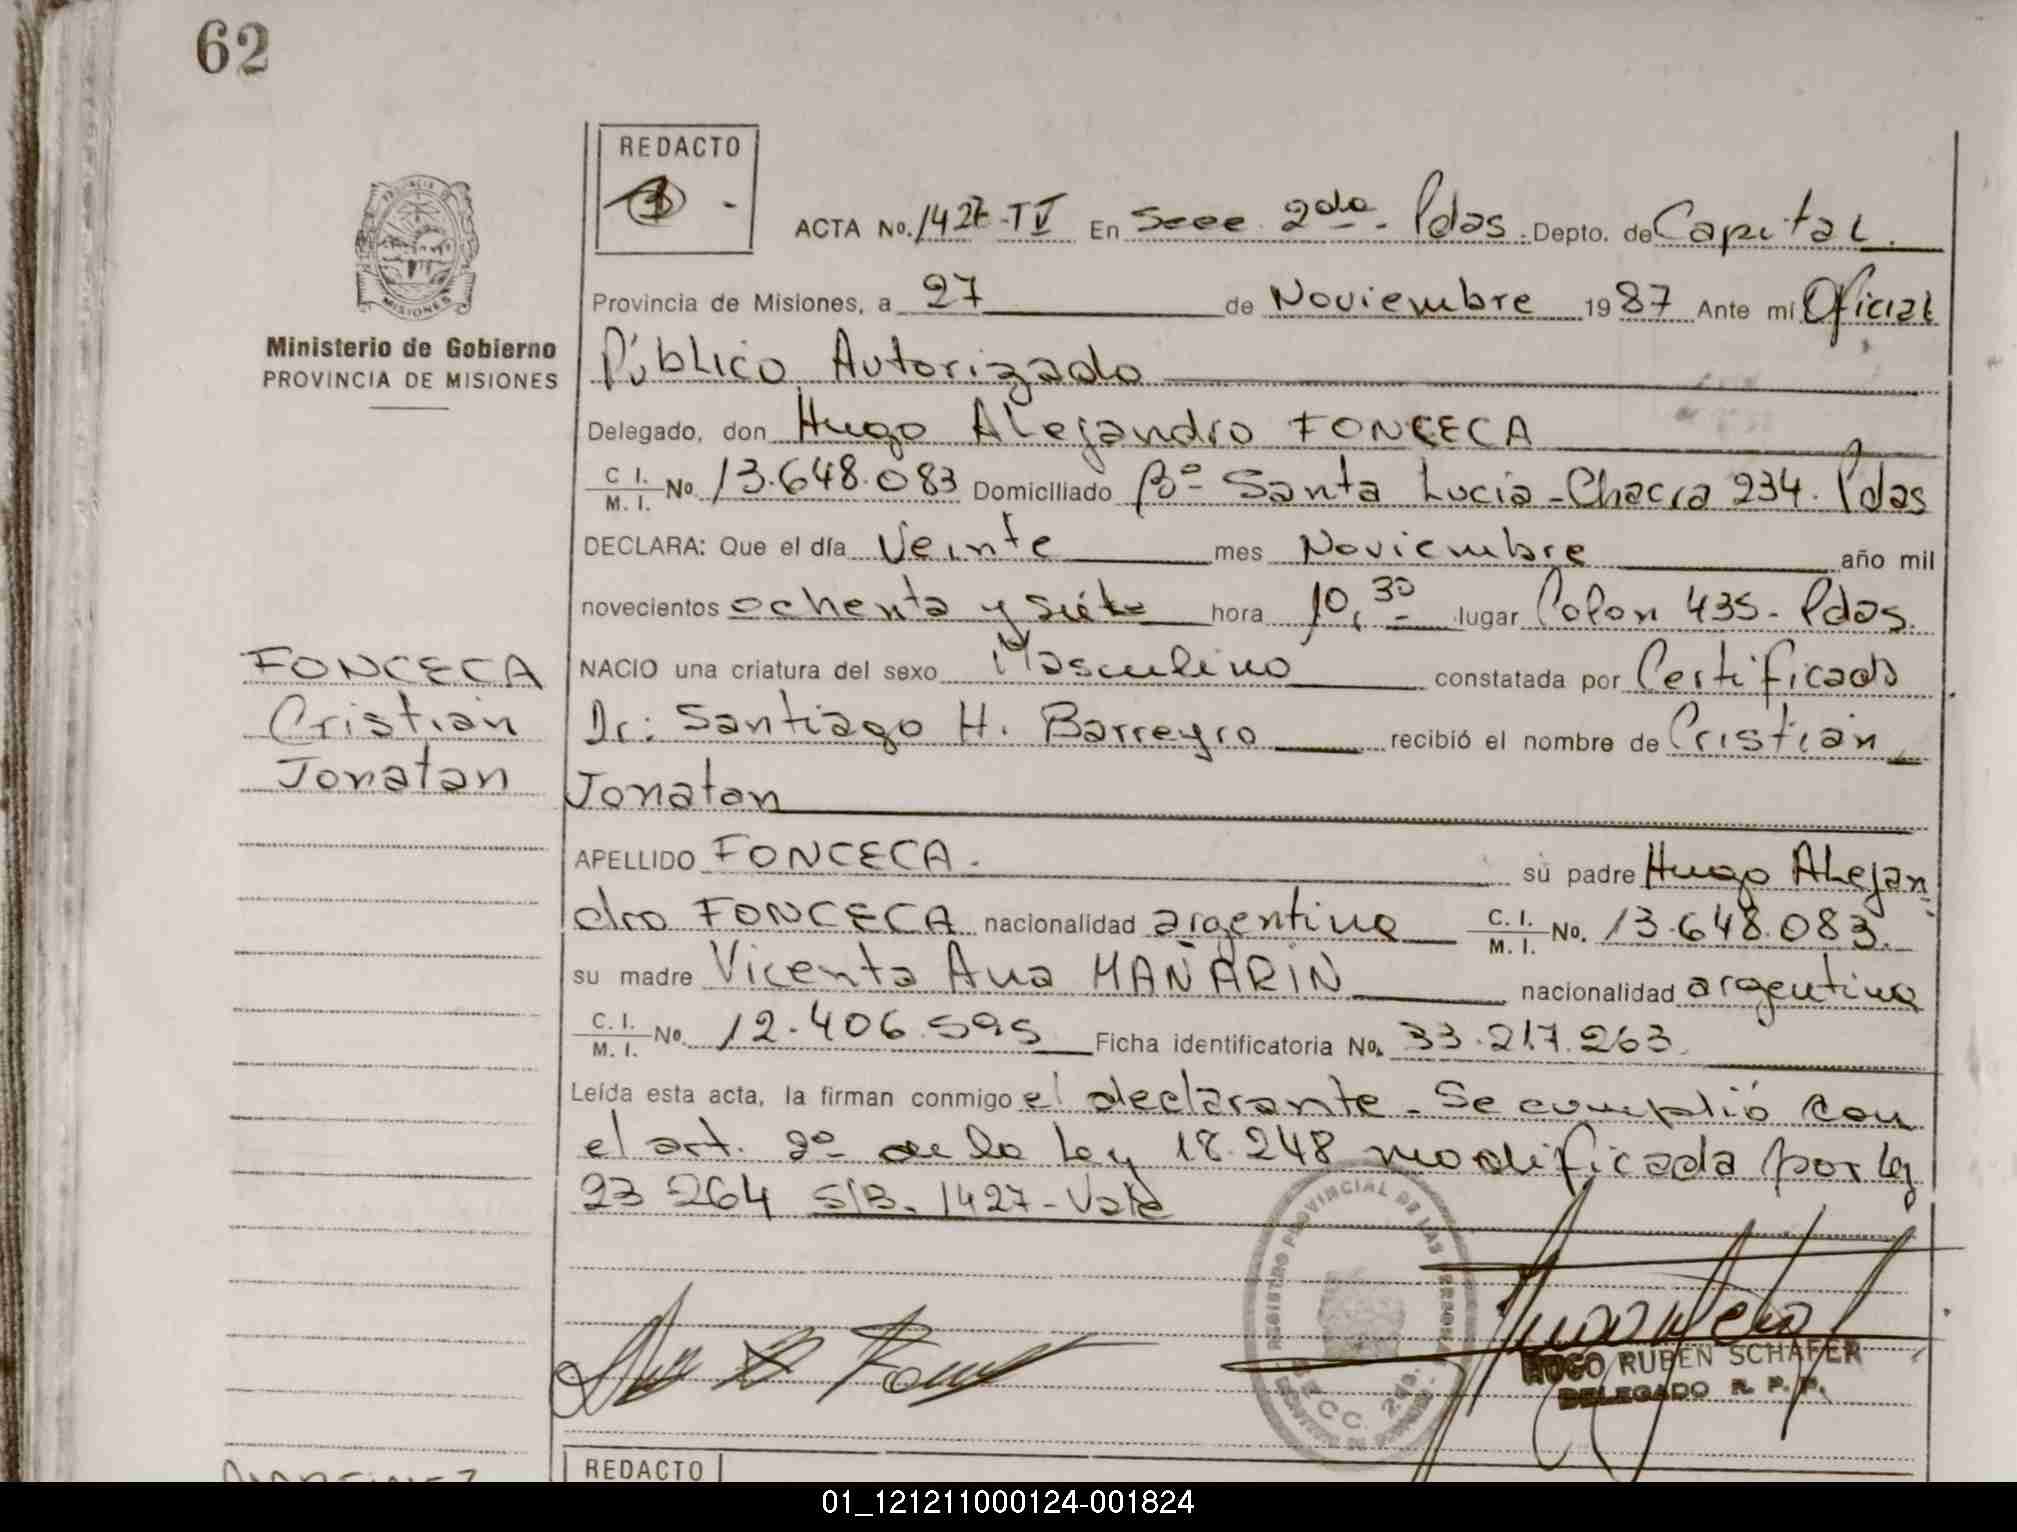 62
REDACTO
ACTA No. 1427-TV En Secc 2da - Pdas. Depto. de Capital
Provincia de Misiones, a 27 de Noviembre 1987 Ante mí Oficial
Ministerio de Gobierno
PROVINCIA DE MISIONES
Público Autorizado
Delegado, don Hugo Alejandro FONCECA
C I. M. I. No. 13.648.083 Domiciliado Bº Santa Lucia - Chacra 234. Pdas
DECLARA: Que el día Veinte mes Noviembre año mil
novecientos ochenta y siete hora 10,30 lugar Colon 435 - Pdas.
FONCECA
Cristian
Jonatan
NACIO una criatura del sexo Masculino constatada por Certificado
Dr: Santiago H. Barreyro recibió el nombre de Cristian
Jonatan
APELLIDO FONCECA. su padre Hugo Alejan
dro FONCECA nacionalidad argentina C. I. M. I. No. 13.648.083.
su madre Vicenta Ana MAÑARIN nacionalidad argentina
C. I. M. I. No. 12.406.595 Ficha identificatoria No. 33.217.263
Leída esta acta, la firman conmigo el declarante - Se cumplió con
el art. 2º de la Ley 18.248 modificada por Ley
23 264 S/B. 1427 - Vale
REGISTRO PROVINCIAL DE LAS PERSONAS
SECC. 2da.
HUGO RUBEN SCHAFER
DELEGADO R. P. P.
REDACTO
01_121211000124-001824